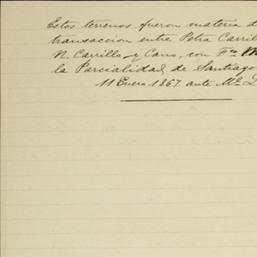 Estos terrenos fueron materia d
transaccion entre Petra Carril
N. Carrillo y Cano, con Fco M
la Parcialidad de Santiago
11 Enero 1867 ante Ml. L